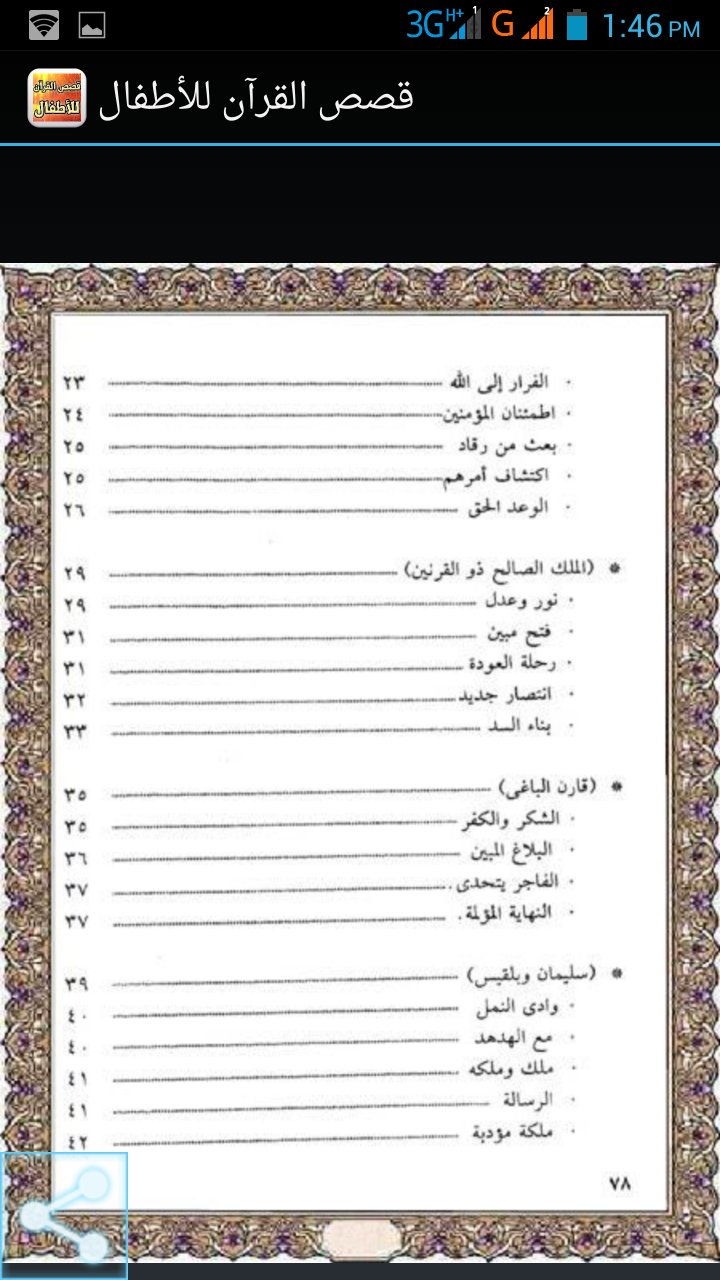 3G H+ 1 G 2 1:46 PM
قصص القرآن للأطفال
قصص القرآن للأطفال
· الفرار إلى الله ٢٣
· اطمئنان المؤمنين ٢٤
· بعث من رقاد ٢٥
· اكتشاف أمرهم ٢٥
· الوعد الحق ٢٦
* (الملك الصالح ذو القرنين) ٢٩
· نور وعدل ٢٩
· فتح مبين ٣١
· رحلة العودة ٣١
· انتصار جديد ٣٢
· بناء السد ٣٣
* (قارن الباغى) ٣٥
· الشكر والكفر ٣٥
· البلاغ المبين ٣٦
· الفاجر يتحدى ٣٧
· النهاية المؤلمة ٣٧
* (سليمان وبلقيس) ٣٩
· وادى النمل ٤٠
· مع الهدهد ٤٠
· ملك وملكه ٤١
· الرسالة ٤١
· ملكة مؤدبة ٤٢
٧٨